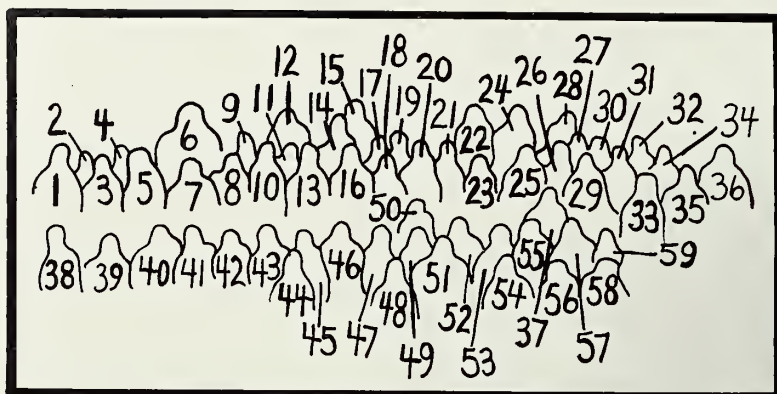 12 15 18 20 27
9 11 14 17 19 21 24 26 28 30 31 32 34
2 4 6 22
1 3 5 7 8 10 13 16 23 25 29 33 35 36
50
38 39 40 41 42 43 44 46 48 51 54 55 56 58 59
45 47 49 52 53 37 57